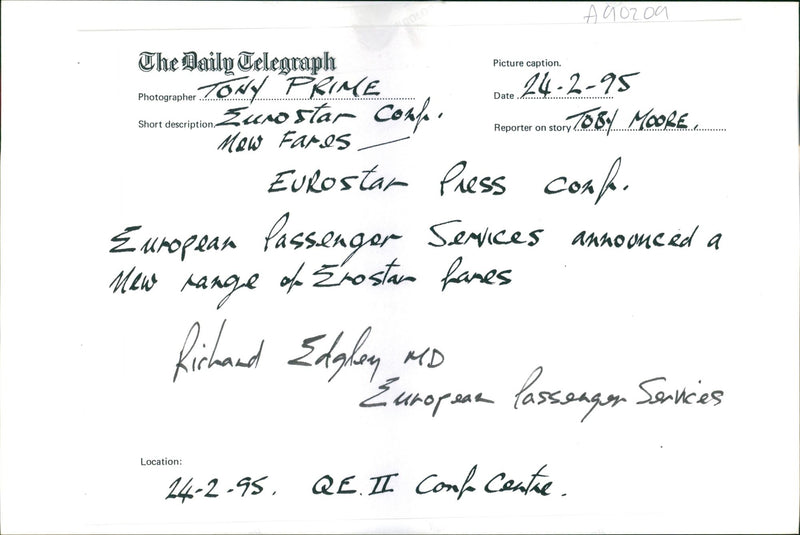 A90209
The Daily Telegraph
Picture caption.
Photographer TONY PRIME
Date 24-2-95
Short description. Eurostar Conf.
New Fares —
Reporter on story TOBY MOORE.
EUROstar Press conf.
European Passenger Services announced a
New range of Erostar fares
Richard Edgley MD
European Passenger Services
Location:
24-2-95. QE. II Conf Centre.